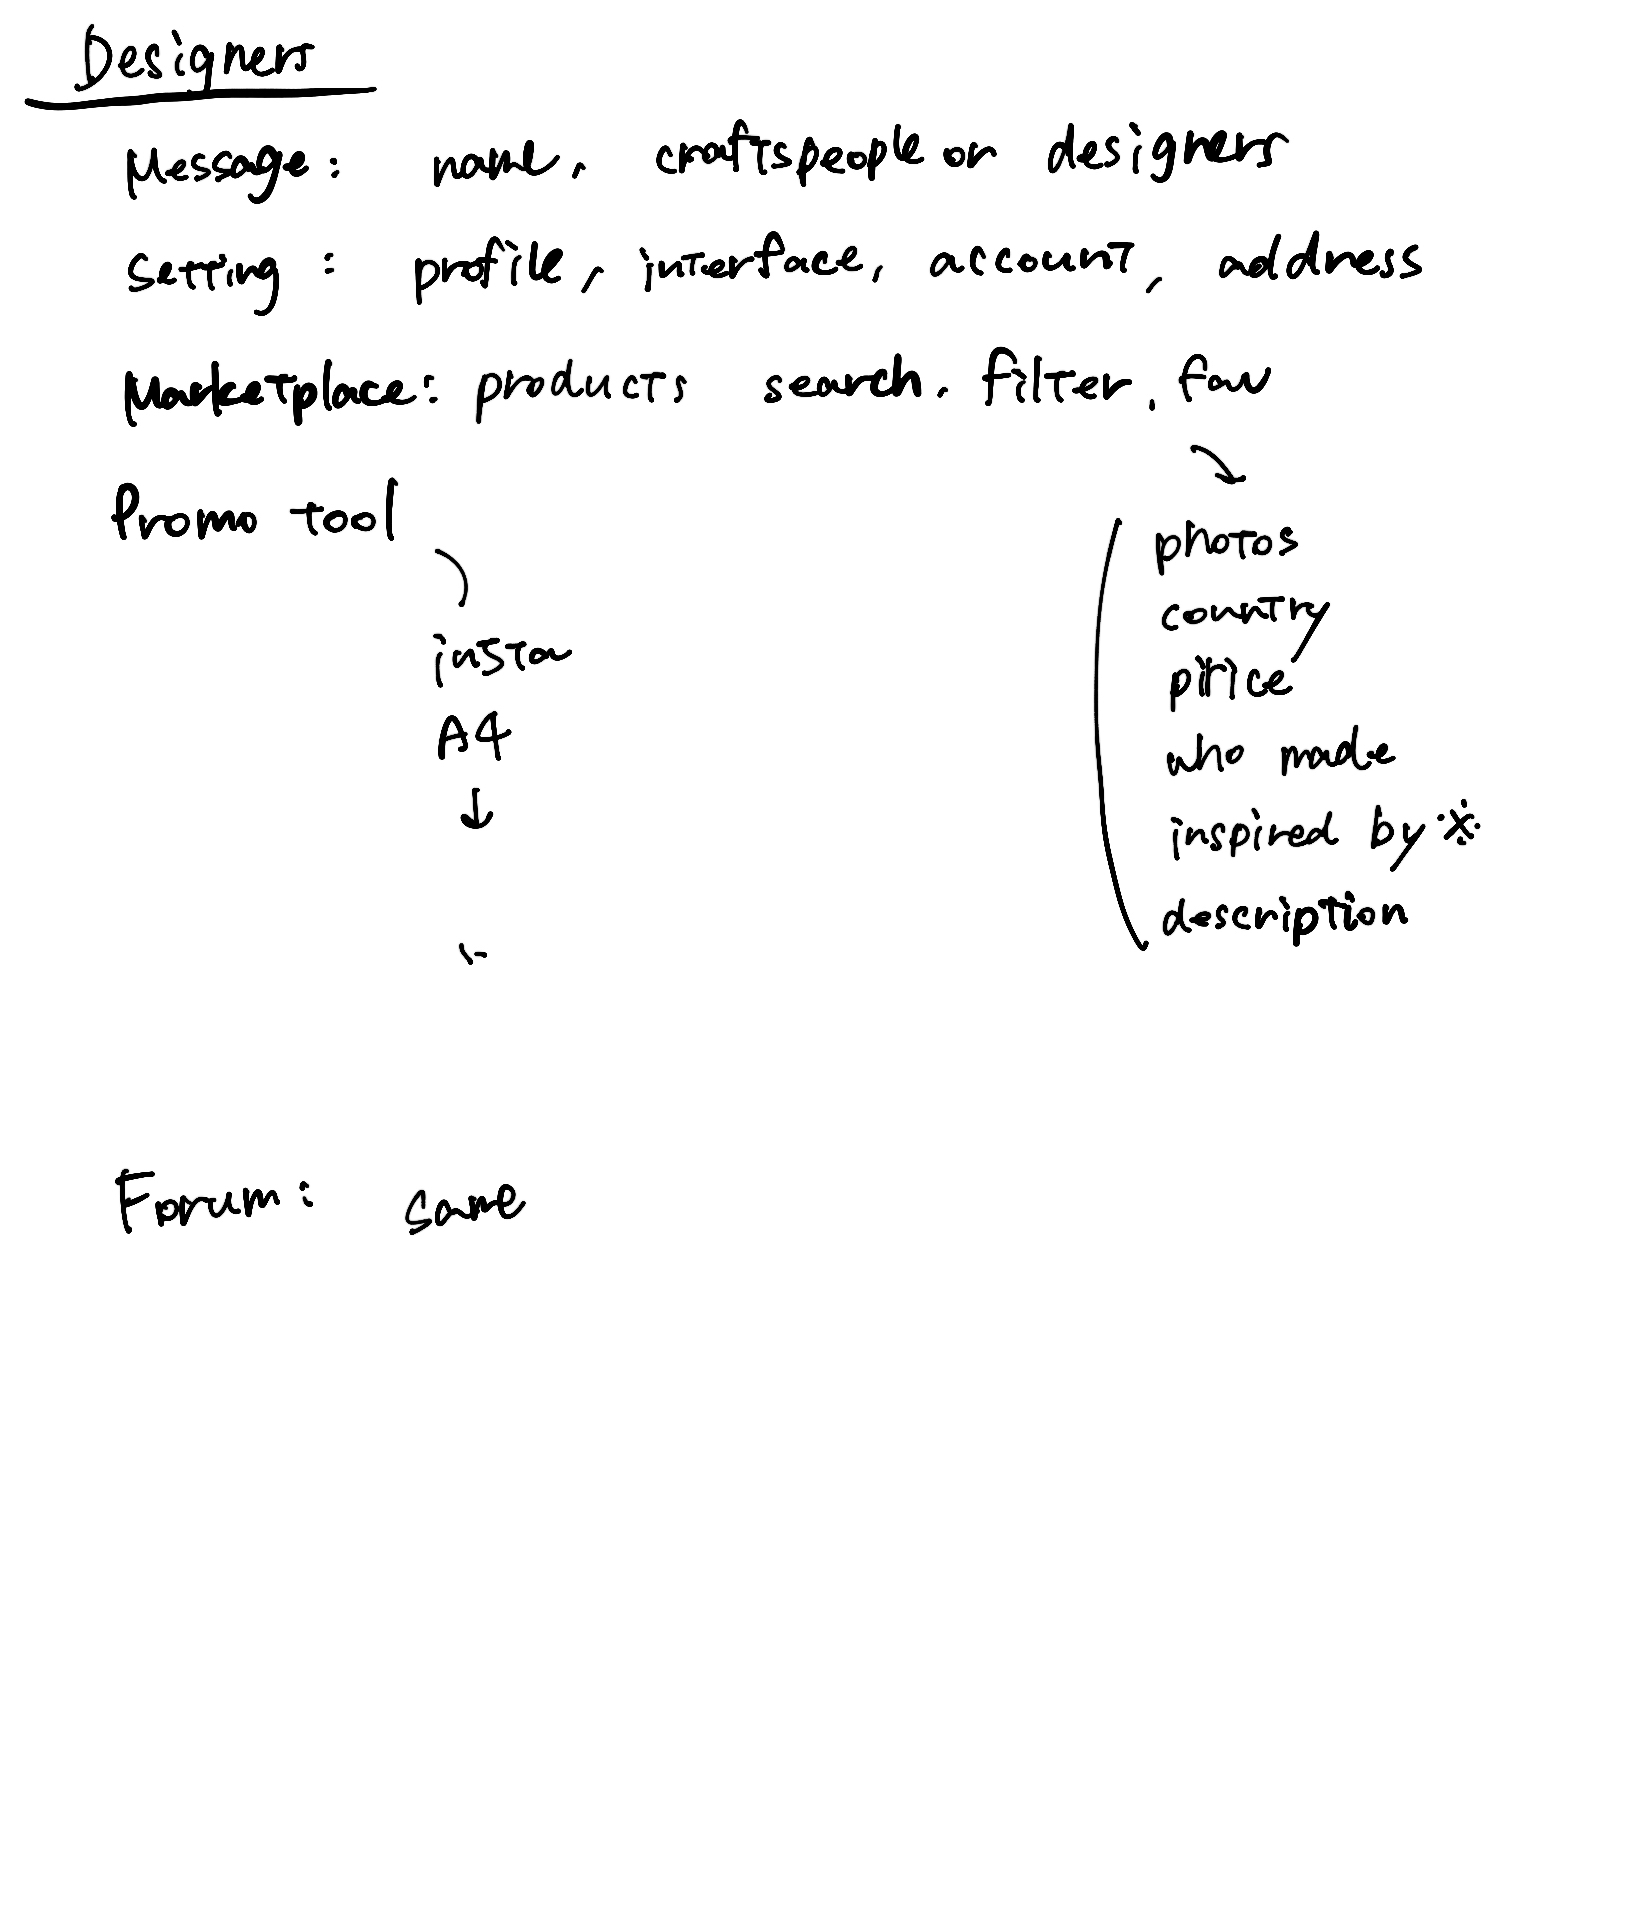 Designers
Message: name, craftspeople or designers
Setting: profile, interface, account, address
Marketplace: products search, filter, fav
Promo tool
insta
A4
photos
country
price
who made
inspired by ※
description
Forum: same